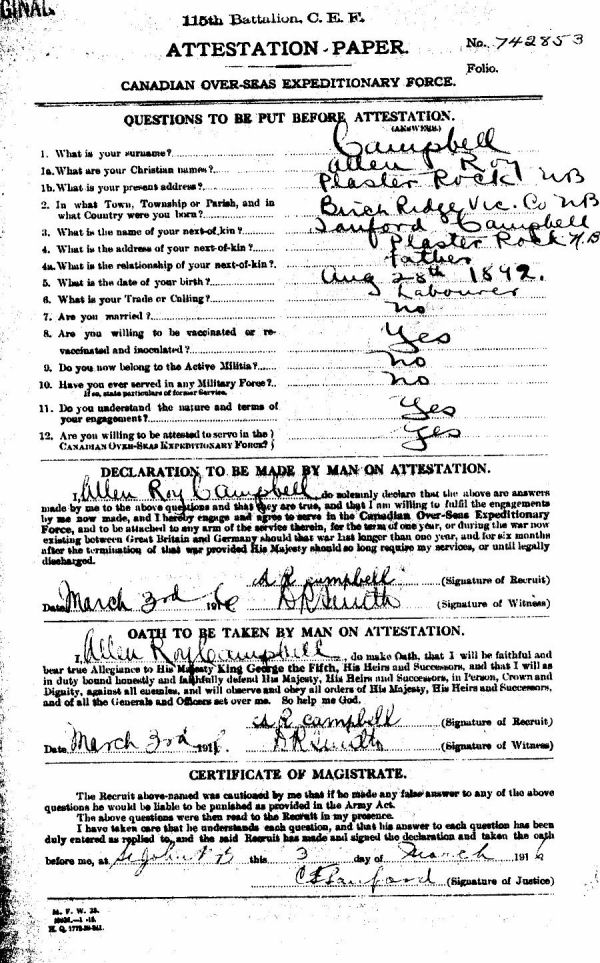 GINAL
115th Battalion, C. E. F.
ATTESTATION-PAPER.
No. 742853
Folio.
CANADIAN OVER-SEAS EXPEDITIONARY FORCE.
QUESTIONS TO BE PUT BEFORE ATTESTATION.
(ANSWERS.)
1. What is your surname? Campbell
1a. What are your Christian names? Allen Roy
1b. What is your present address? Plaster Rock NB
2. In what Town, Township or Parish, and in
what Country were you born? Birch Ridge Vic. Co NB
3. What is the name of your next-of-kin? Sanford Campbell
4. What is the address of your next-of-kin? Plaster Rock N.B
4a. What is the relationship of your next-of-kin? father
5. What is the date of your birth? Aug 28th 1892.
6. What is your Trade or Calling? Labourer
7. Are you married? No
8. Are you willing to be vaccinated or re-
vaccinated and inoculated? Yes
9. Do you now belong to the Active Militia? No
10. Have you ever served in any Military Force? No
If so, state particulars of former Service.
11. Do you understand the nature and terms of
your engagement? Yes
12. Are you willing to be attested to serve in the
CANADIAN OVER-SEAS EXPEDITIONARY FORCE? Yes
DECLARATION TO BE MADE BY MAN ON ATTESTATION.
I, Allen Roy Campbell do solemnly declare that the above are answers
made by me to the above questions and that they are true, and that I am willing to fulfil the engagements
by me now made, and I hereby engage and agree to serve in the Canadian Over-Seas Expeditionary
Force, and to be attached to any arm of the service therein, for the term of one year, or during the war now
existing between Great Britain and Germany should that war last longer than one year, and for six months
after the termination of that war provided His Majesty should so long require my services, or until legally
discharged.
A R Campbell (Signature of Recruit)
Date March 3rd 1916 D R Smith (Signature of Witness)
OATH TO BE TAKEN BY MAN ON ATTESTATION.
I, Allen Roy Campbell, do make Oath, that I will be faithful and
bear true Allegiance to His Majesty King George the Fifth, His Heirs and Successors, and that I will as
in duty bound honestly and faithfully defend His Majesty, His Heirs and Successors, in Person, Crown and
Dignity, against all enemies, and will observe and obey all orders of His Majesty, His Heirs and Successors,
and of all the Generals and Officers set over me. So help me God.
A R Campbell (Signature of Recruit)
Date March 3rd 1916. D R Smith (Signature of Witness)
CERTIFICATE OF MAGISTRATE.
The Recruit above-named was cautioned by me that if he made any false answer to any of the above
questions he would be liable to be punished as provided in the Army Act.
The above questions were then read to the Recruit in my presence.
I have taken care that he understands each question, and that his answer to each question has been
duly entered as replied to, and the said Recruit has made and signed the declaration and taken the oath
before me, at St John N B this 3 day of March 1916
(Signature of Justice)
M. F. W. 23.
H. Q. 1772-39-841.